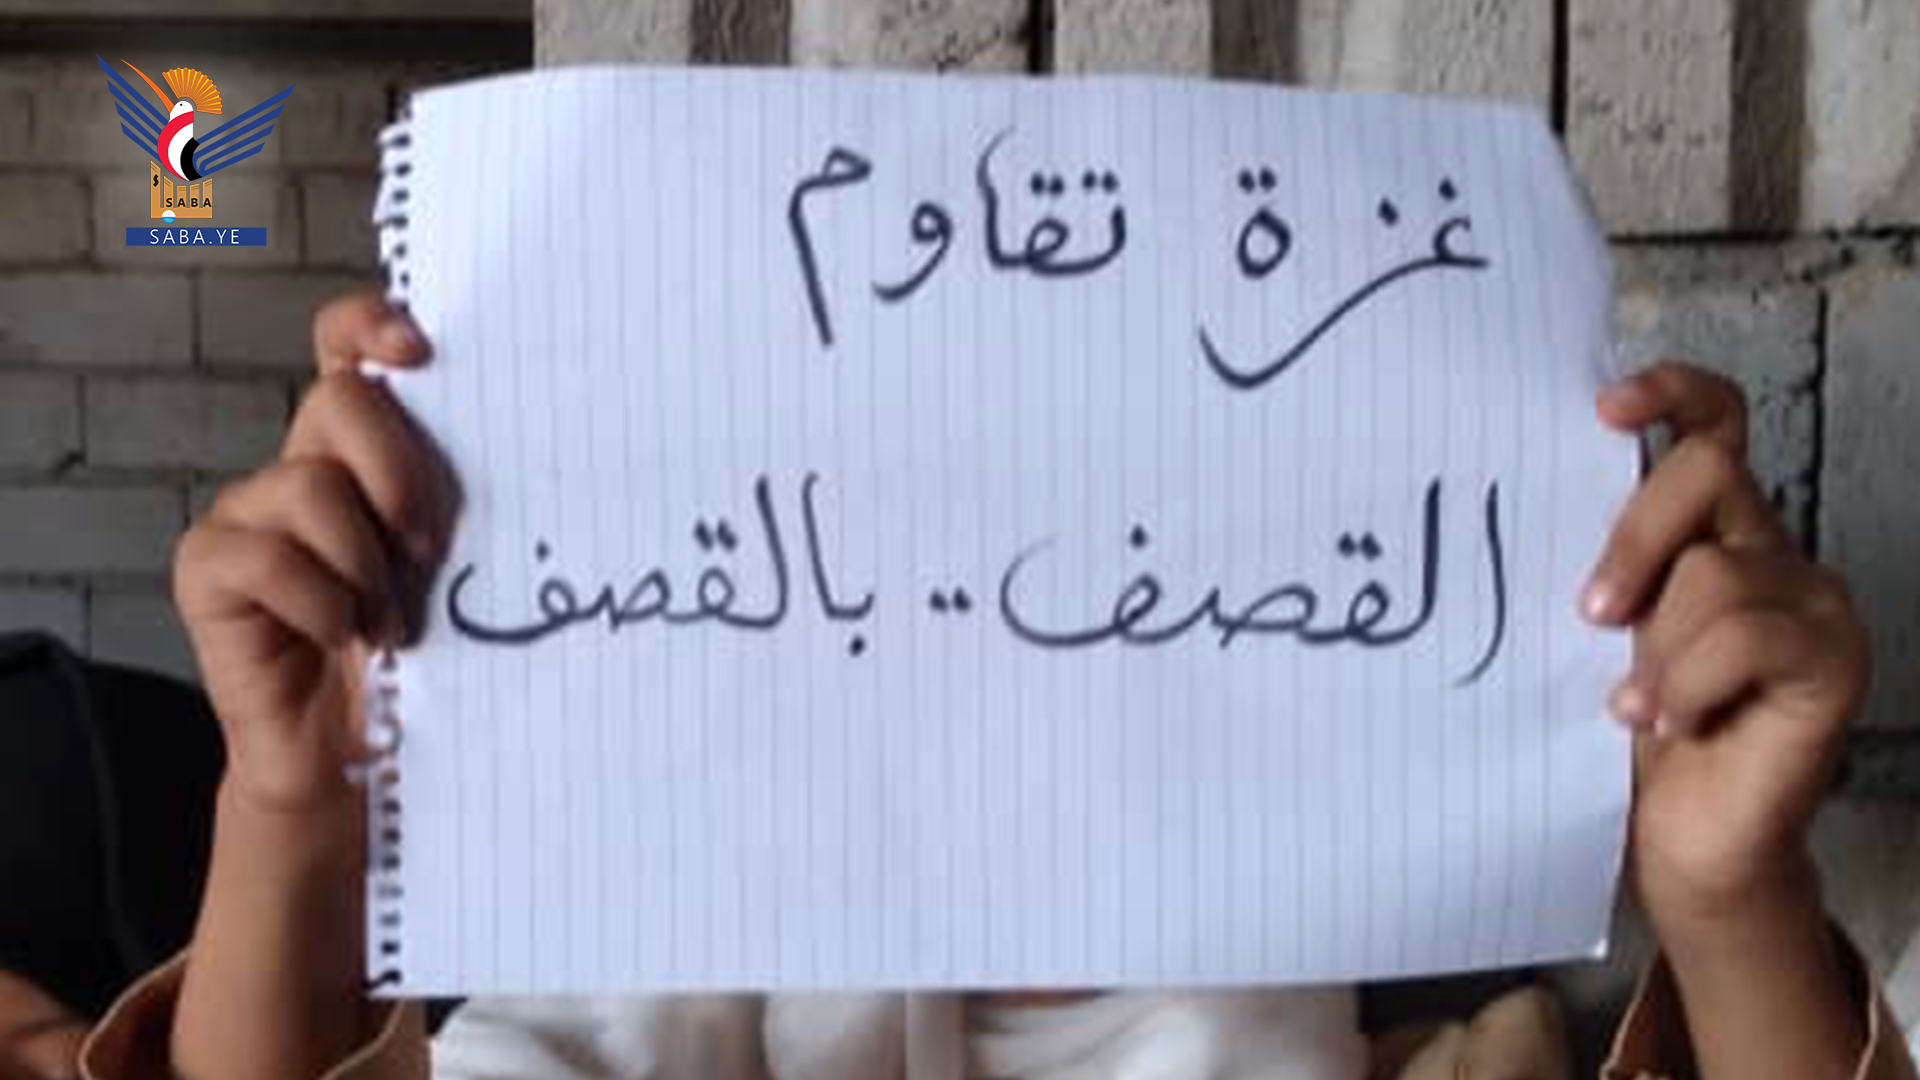 غزة تقاوم
القصف .. بالقصف
SABA
SABA.YE